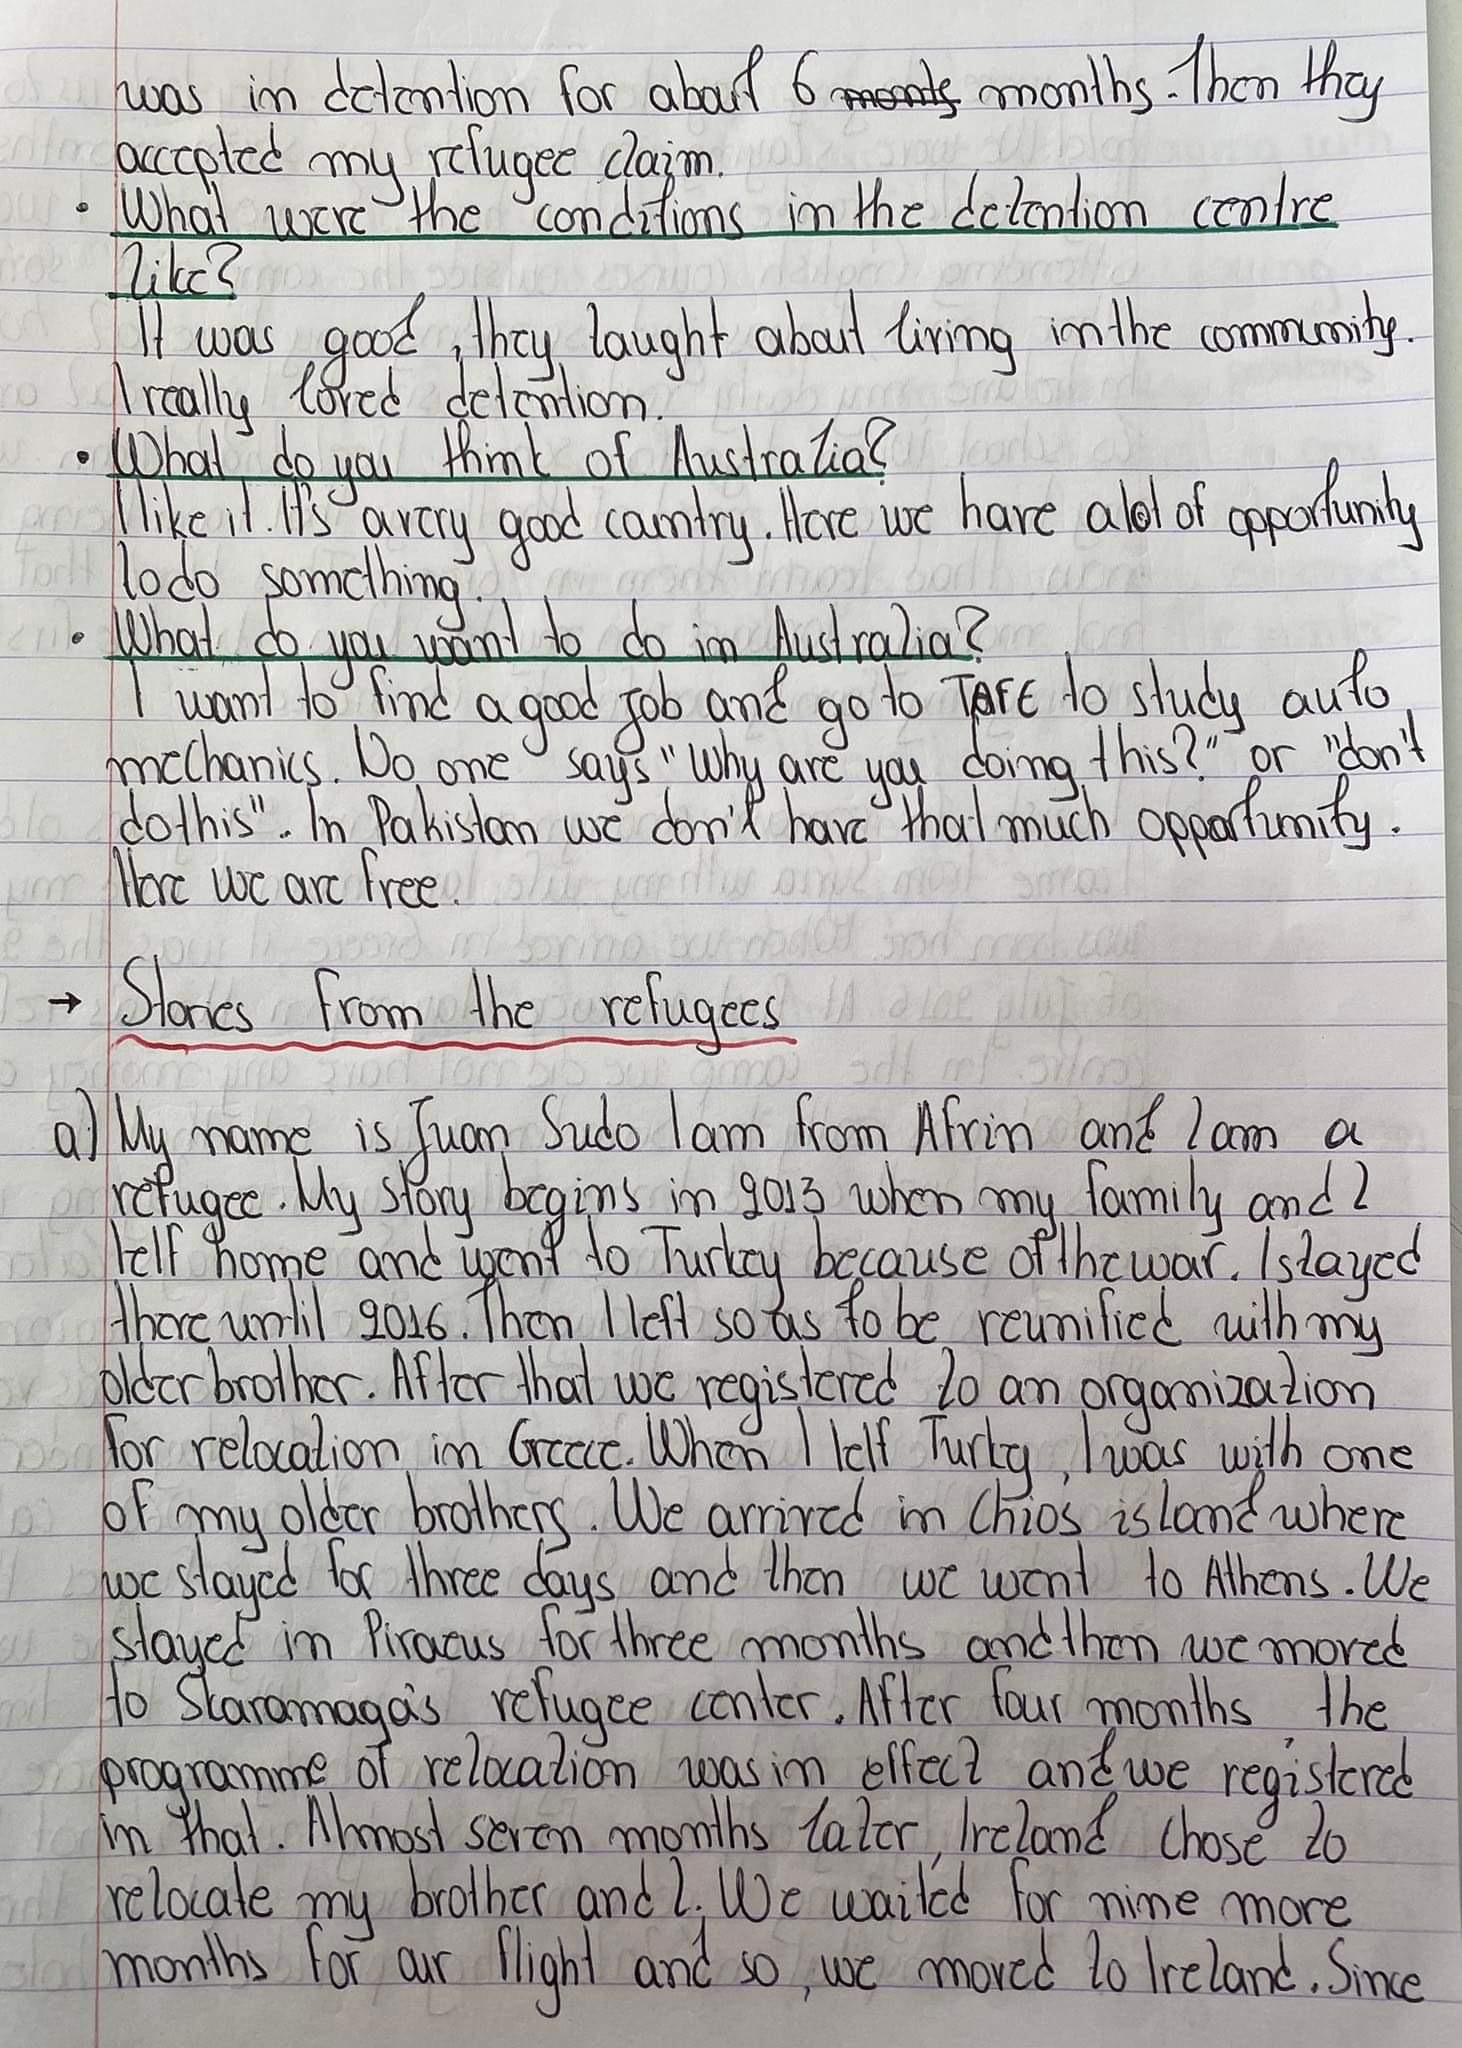 was in detention for about 6 monts months. Then they
accepted my refugee claim.
• What were the conditions in the detention centre
like?
It was good, they taught about living in the community.
I really loved detention.
• What do you think of Australia?
I like it. It's a very good country. Here we have a lot of opportunity
to do something.
• What do you want to do in Australia?
I want to find a good job and go to TAFE to study auto
mechanics. No one says "Why are you doing this?" or "don't
do this".. In Pakistan we don't have that much opportunity.
Here we are free.
→ Stories from the refugees
a) My name is Juan Sudo I am from Afrin and I am a
refugee. My story begins in 2013 when my family and I
left home and went to Turkey because of the war. I stayed
there until 2016. Then I left so as to be reunified with my
older brother. After that we registered to an organization
for relocation in Greece. When I left Turky, I was with one
of my older brothers. We arrived in Chios island where
we stayed for three days and then we went to Athens. We
stayed in Piraeus for three months and then we moved
to Skaramaga's refugee center. After four months the
programme of relocation was in effect and we registered
in that. Almost seven months later, Ireland chose to
relocate my brother and I. We waited for nine more
months for our flight and so, we moved to Ireland. Since